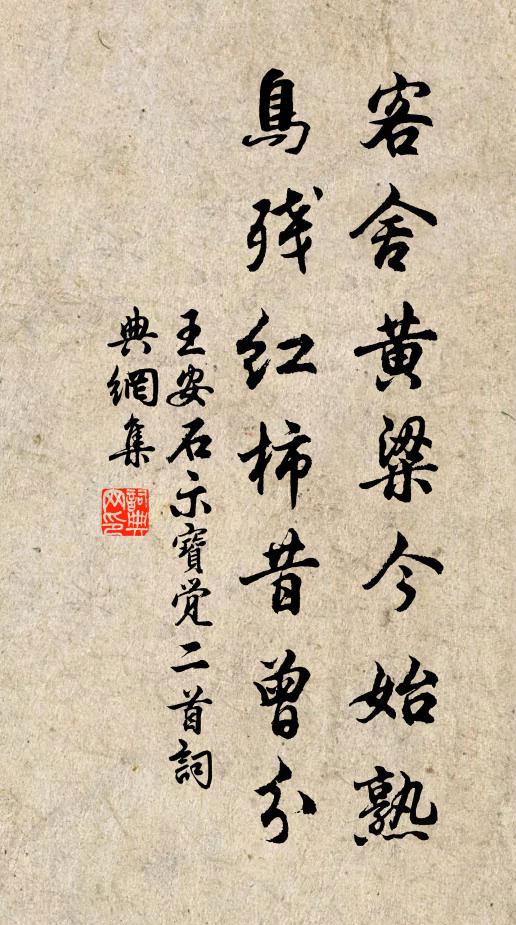 客舍黄粱今始熟
鳥殘紅柿昔曾分
王安石示寶覺二首詞
典網集
詞典
网印